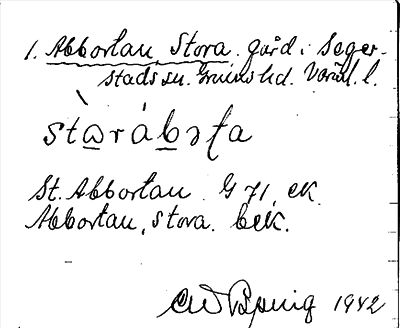 1. Abbortan, Stora. gård i Seger-
stads sn. Grums hd. Värml. l.
stạ̀rábəʈa
St. Abbortan. G 71, ek.
Abbortan, stora. bek.
1942